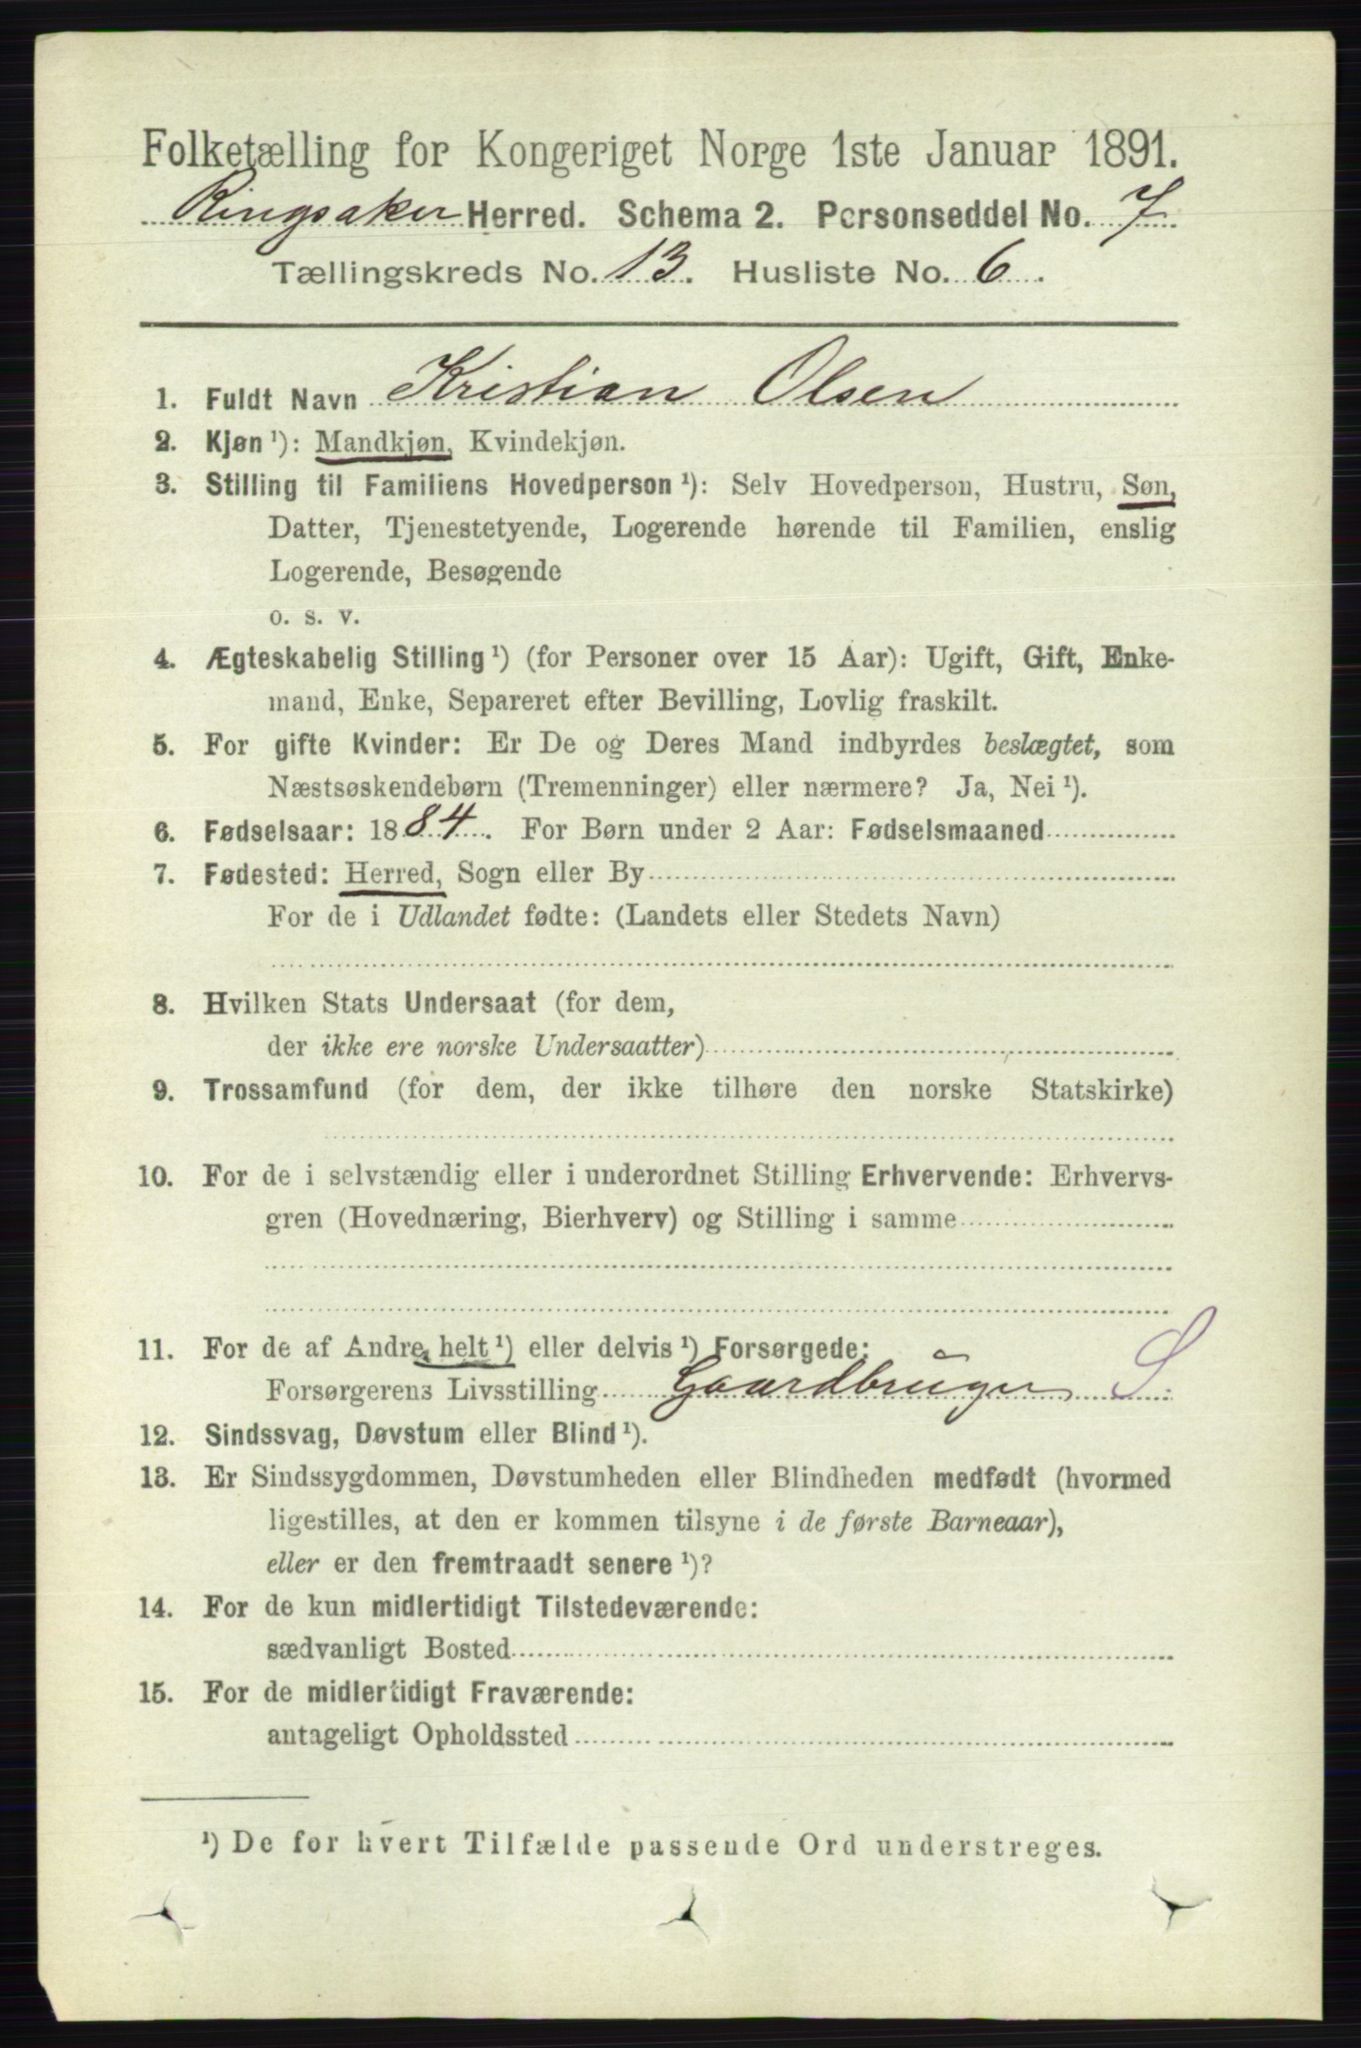 Folketælling for Kongeriget Norge 1ste Januar 1891.
Ringsaker Herred. Schema 2. Personseddel No. 7
Tællingskreds No. 13. Husliste No. 6.
1. Fuldt Navn Kristian Olsen
2. Kjøn ¹): Mandkjøn, Kvindekjøn.
3. Stilling til Familiens Hovedperson ¹): Selv Hovedperson, Hustru, Søn,
Datter, Tjenestetyende, Logerende hørende til Familien, enslig
Logerende, Besøgende
o. s. v.
4. Ægteskabelig Stilling ¹) (for Personer over 15 Aar): Ugift, Gift, Enke-
mand, Enke, Separeret efter Bevilling, Lovlig fraskilt.
5. For gifte Kvinder: Er De og Deres Mand indbyrdes beslægtet, som
Næstsøskendebørn (Tremenninger) eller nærmere? Ja, Nei ¹).
6. Fødselsaar: 1884. For Børn under 2 Aar: Fødselsmaaned
7. Fødested: Herred, Sogn eller By
For de i Udlandet fødte: (Landets eller Stedets Navn)
8. Hvilken Stats Undersaat (for dem,
der ikke ere norske Undersaatter)
9. Trossamfund (for dem, der ikke tilhøre den norske Statskirke)
10. For de i selvstændig eller i underordnet Stilling Erhvervende: Erhvervs-
gren (Hovednæring, Bierhverv) og Stilling i samme
11. For de af Andre helt ¹) eller delvis ¹) Forsørgede:
Forsørgerens Livsstilling Gaardbruger S.
12. Sindssvag, Døvstum eller Blind ¹).
13. Er Sindssygdommen, Døvstumheden eller Blindheden medfødt (hvormed
ligestilles, at den er kommen tilsyne i de første Barneaar),
eller er den fremtraadt senere ¹)?
14. For de kun midlertidigt Tilstedeværende:
sædvanligt Bosted
15. For de midlertidigt Fraværende:
antageligt Opholdssted
¹) De for hvert Tilfælde passende Ord understreges.